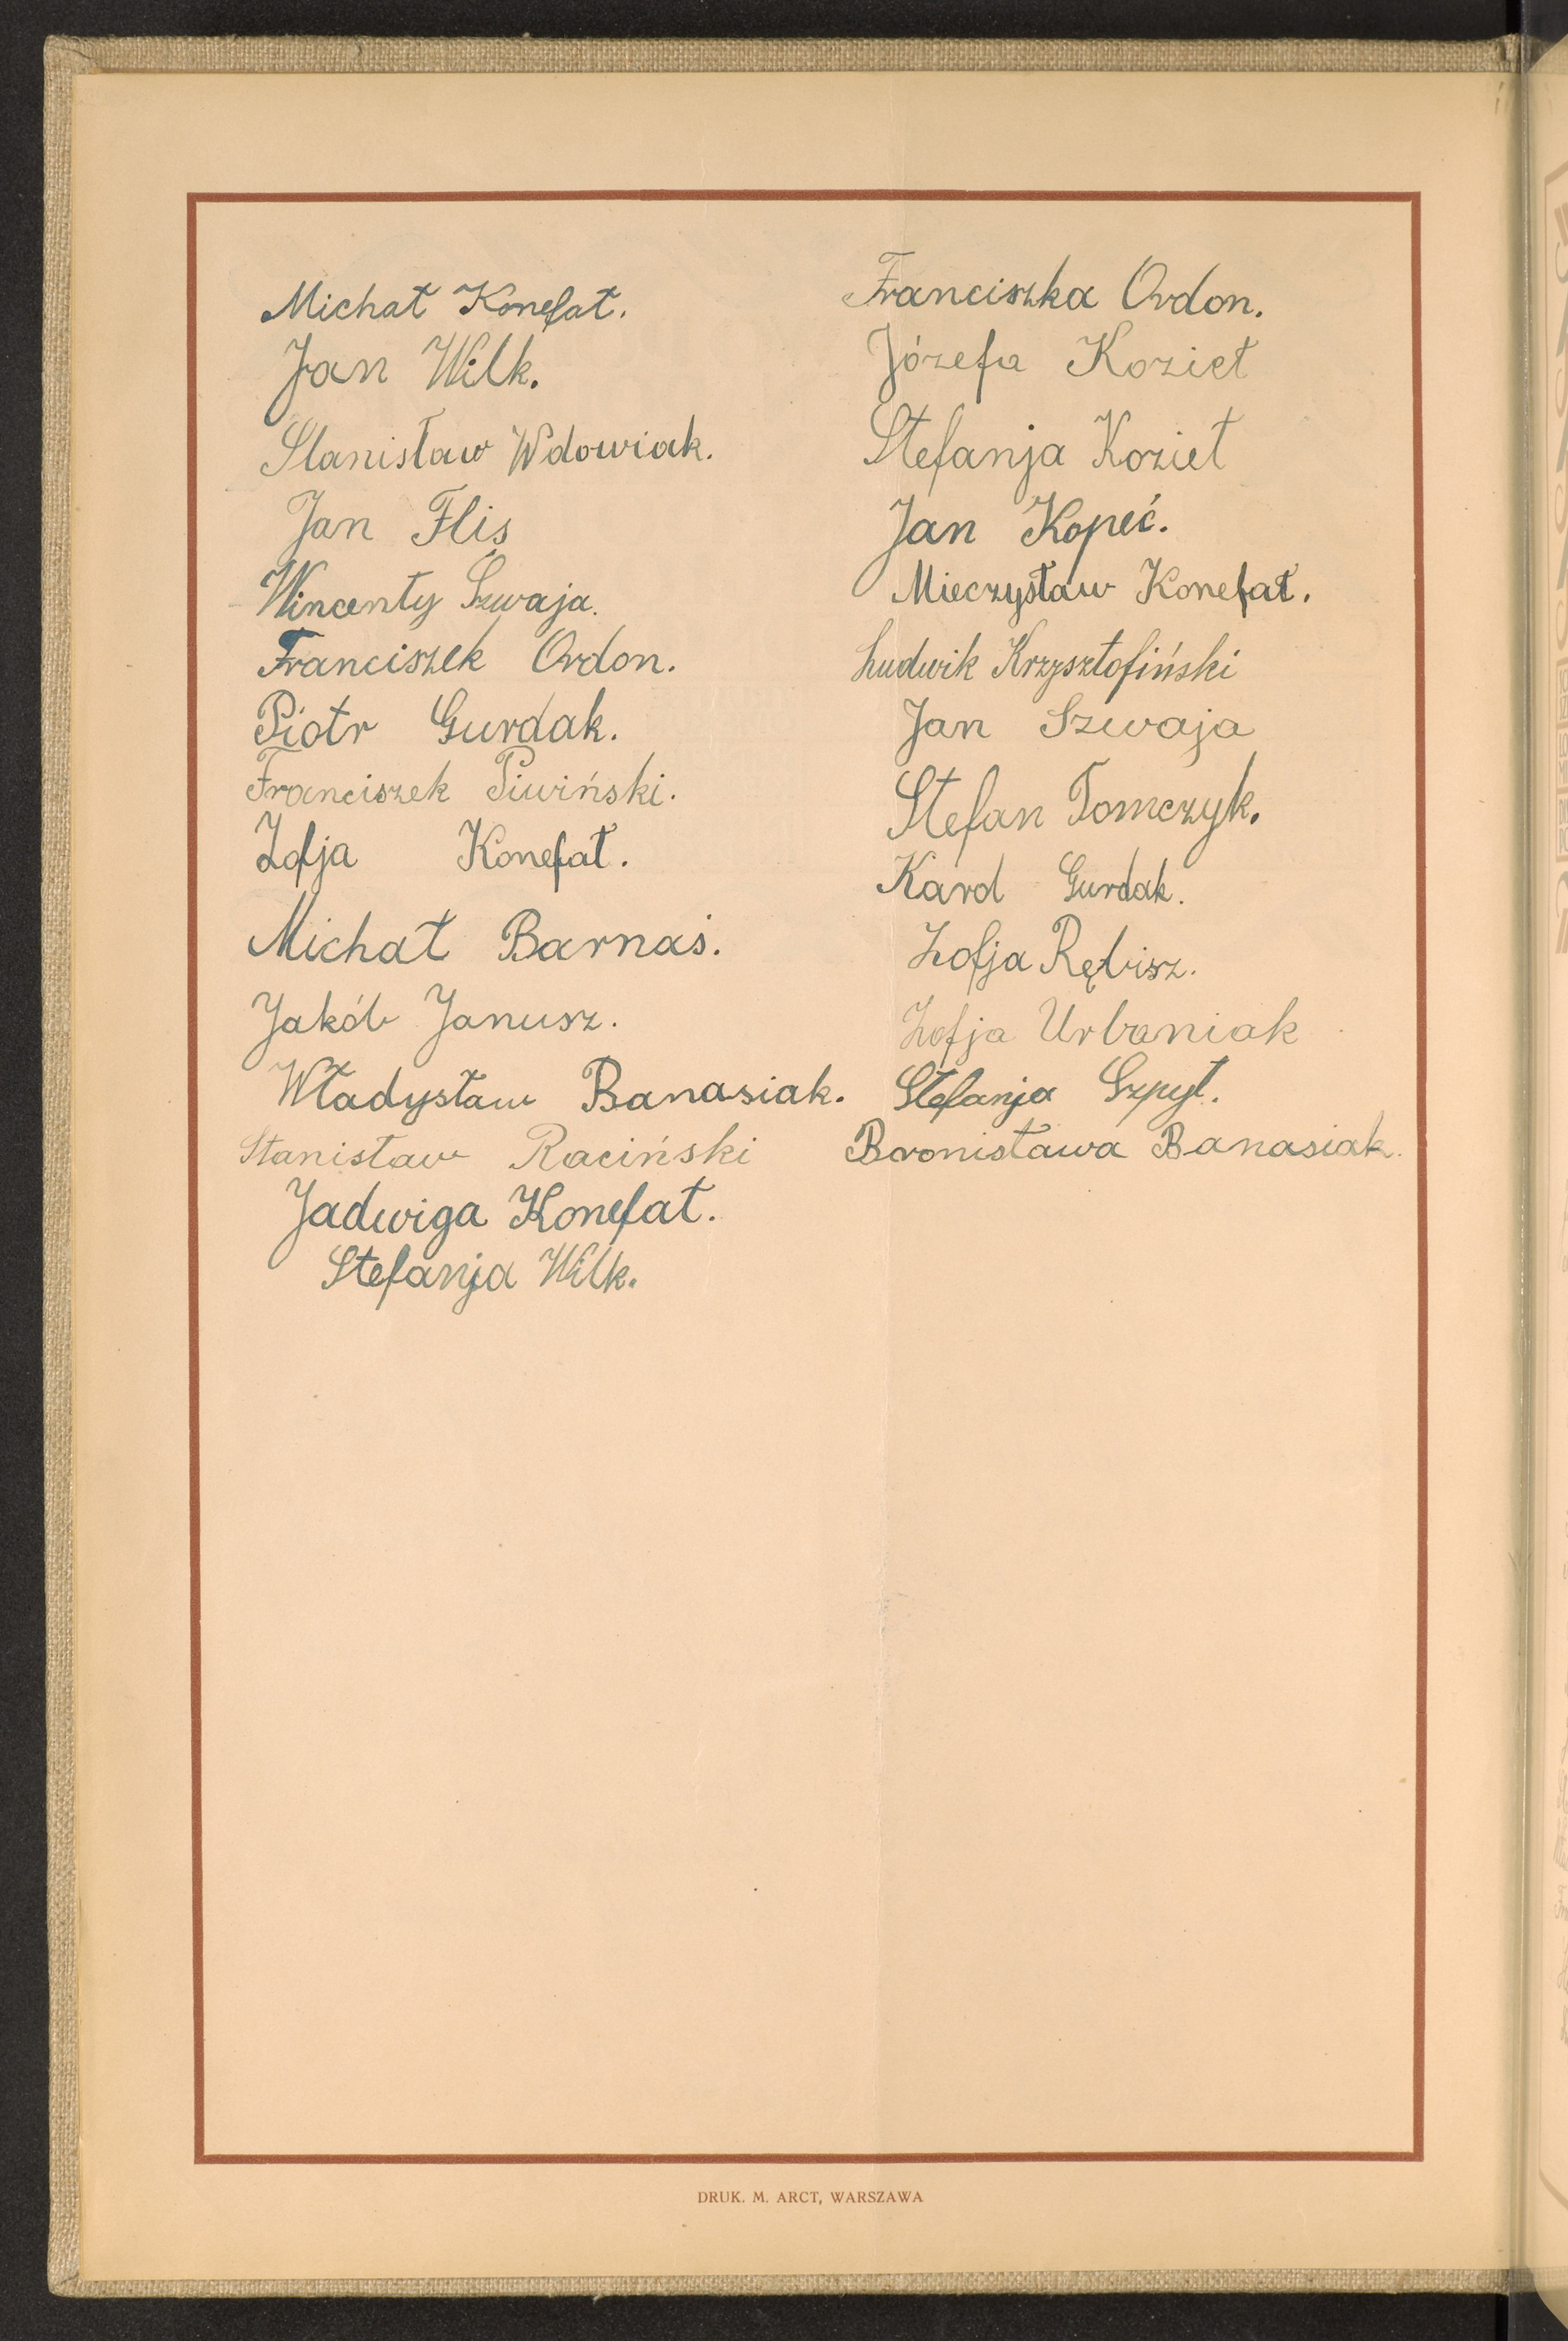 Michał Konefał.
Jan Wilk.
Stanisław Wdowiak.
Jan Flis
Wincenty Szwaja.
Franciszek Ordon.
Piotr Gurdak.
Franciszek Piwiński.
Zofja Konefał.
Michał Barnaś.
Jakób Janusz.
Władysław Banasiak.
Stanisław Raciński
Jadwiga Konefał.
Stefanja Wilk.
Franciszka Ordon.
Józefa Kozieł
Stefanja Kozieł
Jan Kopeć.
Mieczysław Konefał.
Ludwik Krzysztofiński
Jan Szwaja
Stefan Tomczyk.
Karol Gurdak.
Zofja Rębisz.
Zofja Urbaniak
Stefanja Szpyt.
Bronisława Banasiak.
DRUK. M. ARCT, WARSZAWA